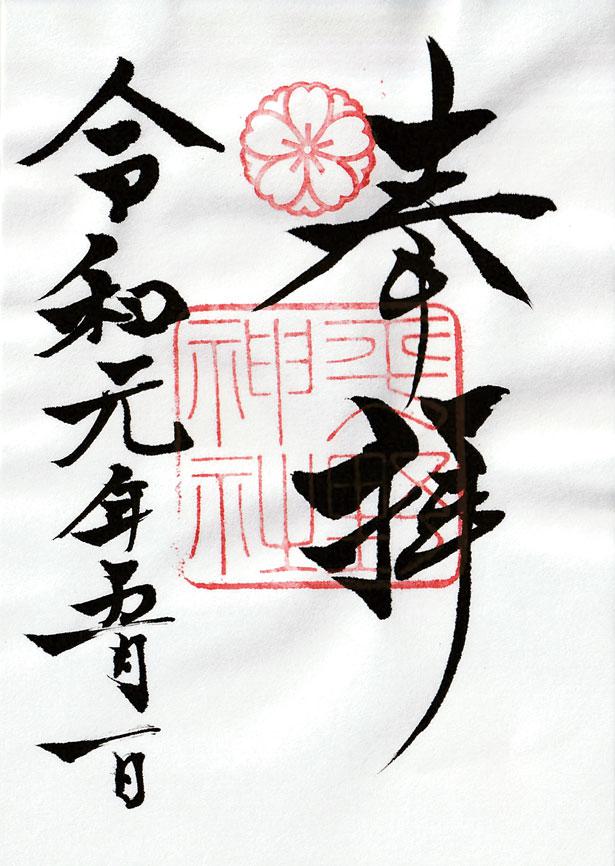 奉拝
神社
令和元年五月一日